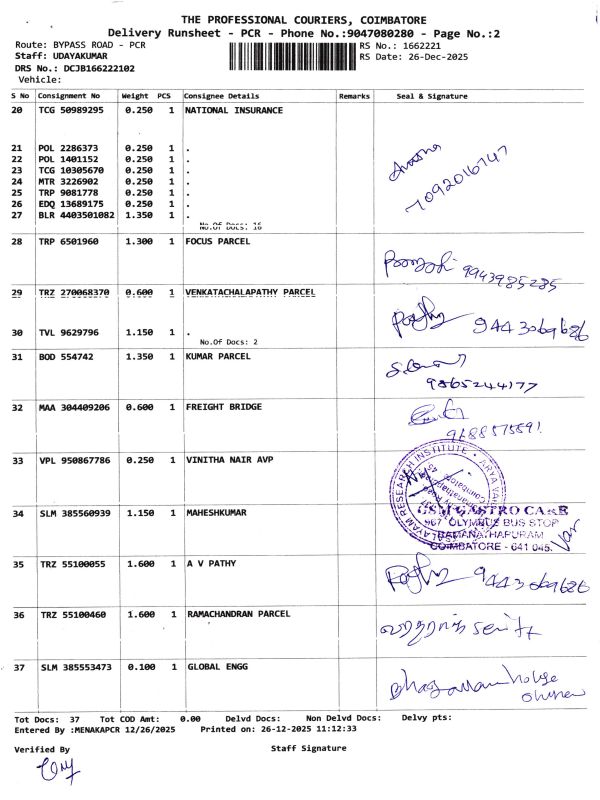 THE PROFESSIONAL COURIERS, COIMBATORE
Delivery Runsheet - PCR - Phone No.:9047080280 - Page No.:2
Route: BYPASS ROAD - PCR RS No.: 1662221
Staff: UDAYAKUMAR RS Date: 26-Dec-2025
DRS No.: DCJB166222102
Vehicle:
S No Consignment No Weight PCS Consignee Details Remarks Seal & Signature
20 TCG 50989295 0.250 1 NATIONAL INSURANCE
21 POL 2286373 0.250 1 .
22 POL 1401152 0.250 1 .
23 TCG 10305670 0.250 1 .
24 MTR 3226902 0.250 1 .
25 TRP 9081778 0.250 1 .
26 EDQ 13689175 0.250 1 .
27 BLR 4403501082 1.350 1 .
7092016747
No.Of Docs: 16
28 TRP 6501960 1.300 1 FOCUS PARCEL
9943985285
29 TRZ 270068370 0.600 1 VENKATACHALAPATHY PARCEL
9443069686
30 TVL 9629796 1.150 1 .
No.Of Docs: 2
31 BOD 554742 1.350 1 KUMAR PARCEL
9865244177
32 MAA 304409206 0.600 1 FREIGHT BRIDGE
9188575891
33 VPL 950867786 0.250 1 VINITHA NAIR AVP
RESEARCH INSTITUTE
34 SLM 385560939 1.150 1 MAHESHKUMAR
GSM GASTRO CARE
967 OLYMBUS BUS STOP
RAMANATHAPURAM
COIMBATORE - 641 045.
35 TRZ 55100055 1.600 1 A V PATHY
9443069686
36 TRZ 55100460 1.600 1 RAMACHANDRAN PARCEL
37 SLM 385553473 0.100 1 GLOBAL ENGG
Tot Docs: 37 Tot COD Amt: 0.00 Delvd Docs: Non Delvd Docs: Delvy pts:
Entered By :MENAKAPCR 12/26/2025 Printed on: 26-12-2025 11:12:33
Verified By Staff Signature